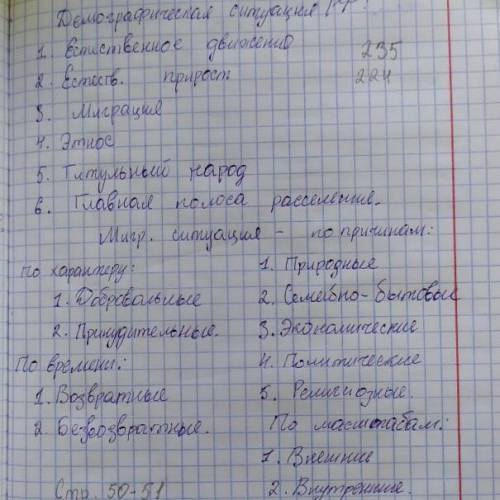 Демографическая ситуация РФ:
1. Естиственное движение 235
2. Естеств. прирост 224
3. Миграция
4. Этнос
5. Титульный народ
6. Главная полоса расселение.
Мигр. ситуация - по причинам:
по характеру: 1. Природные
1. Добровольные 2. Семейно-бытовые
2. Принудительные. 3. Экономические
По времени: 4. Политические
1. Возвратные 5. Религиозные.
2. Безвозвратные. По масштабам:
1. Внешние
Стр. 50-51 2. Внутренние.